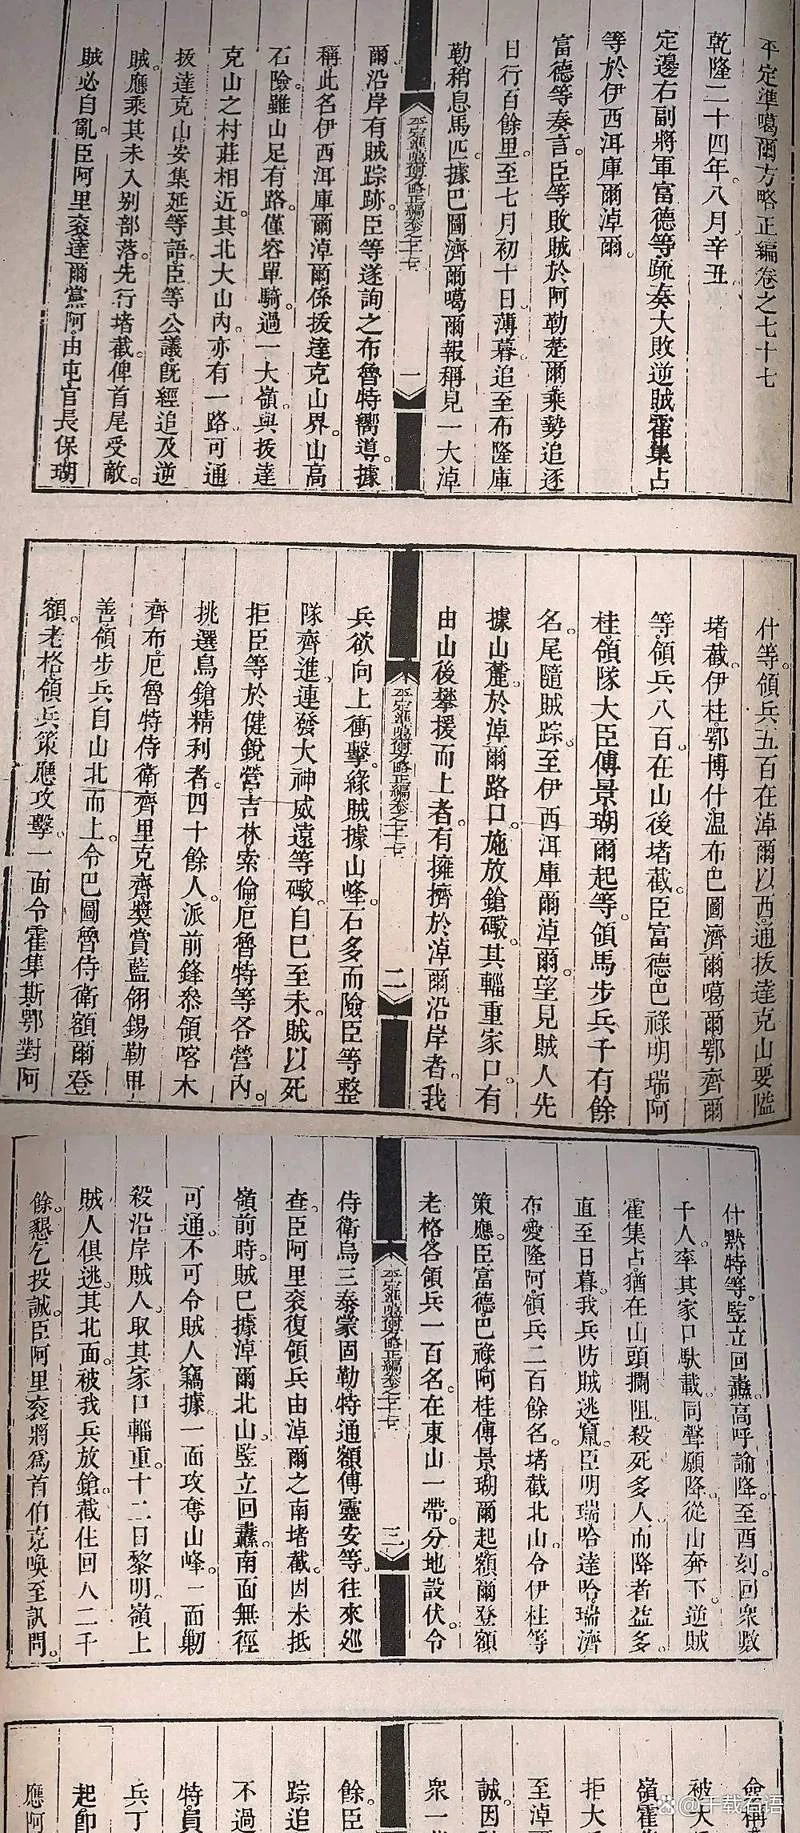 平定準噶爾方略正編卷之七十七
乾隆二十四年八月辛丑
定邊右副將軍富德等疏奏大敗逆賊霍集占
等於伊西洱庫爾淖爾
富德等奏言臣等敗賊於阿勒楚爾乘勢追逐
日行百餘里至七月初十日薄暮追至布隆庫
勒稍息馬匹據巴圖濟爾噶爾報稱見一大淖
平定準噶爾方略正編卷之七十七
一
爾沿岸有賊踪跡臣等遂詢之布魯特嚮導據
稱此名伊西洱庫爾淖爾係拔達克山界山高
石險雖山足有路僅容單騎過一大嶺與拔達
克山之村莊相近其北大山內亦有一路可通
拔達克山安集延等語臣等公議既經追及逆
賊應乘其未入別部落先行堵截俾首尾受敵
賊必自亂臣阿里衮達爾黨阿由屯官長保瑚
什等領兵五百在淖爾以西通拔達克山要隘
堵截伊柱鄂博什溫布巴圖濟爾噶爾鄂齊爾
等領兵八百在山後堵截臣富德巴祿明瑞阿
桂領隊大臣傅景瑚爾起等領馬步兵千有餘
名尾隨賊踪至伊西洱庫爾淖爾望見賊人先
據山麓於淖爾路口施放鎗礮其輜重家口有
由山後攀援而上者有擁擠於淖爾沿岸者我
平定準噶爾方略正編卷之七十七
二
兵欲向上衝擊緣賊據山峰石多而險臣等整
隊齊進連發大神威遠等礮自巳至未賊以死
拒臣等於健銳營吉林索倫厄魯特等各營內
挑選鳥鎗精利者四十餘人派前鋒叅領喀木
齊布厄魯特侍衛齊里克齊獎賞藍翎錫勒甲
善領步兵自山北而上令巴圖魯侍衛額爾登
額老格領兵策應攻擊一面令霍集斯鄂對阿
什默特等豎立回纛高呼諭降至酉刻回衆數
千人率其家口馱載同聲願降從山奔下逆賊
霍集占猶在山頭攔阻殺死多人而降者益多
直至日暮我兵防賊逃竄臣明瑞哈達哈瑞濟
布愛隆阿領兵二百餘名堵截北山令伊柱等
策應臣富德巴祿阿桂傅景瑚爾起額爾登額
老格各領兵一百名在東山一帶分地設伏令
平定準噶爾方略正編卷之七十七
三
侍衛烏三泰蒙固勒特通額傅靈安等往來巡
查臣阿里衮復領兵由淖爾之南堵截因未抵
嶺前時賊已據淖爾北山豎立回纛南面無徑
可通不可令賊人竊據一面攻奪山峰一面勦
殺沿岸賊人取其家口輜重十二日黎明嶺上
賊人俱逃其北面被我兵放鎗截住回人二千
餘懇乞投誠臣阿里衮將爲首伯克喚至訊問
被大
嶺霍
拒大
至淖
誠因
衆一
餘臣
踪追
不過
特員
兵丁
起卽
應阿
@千载看语